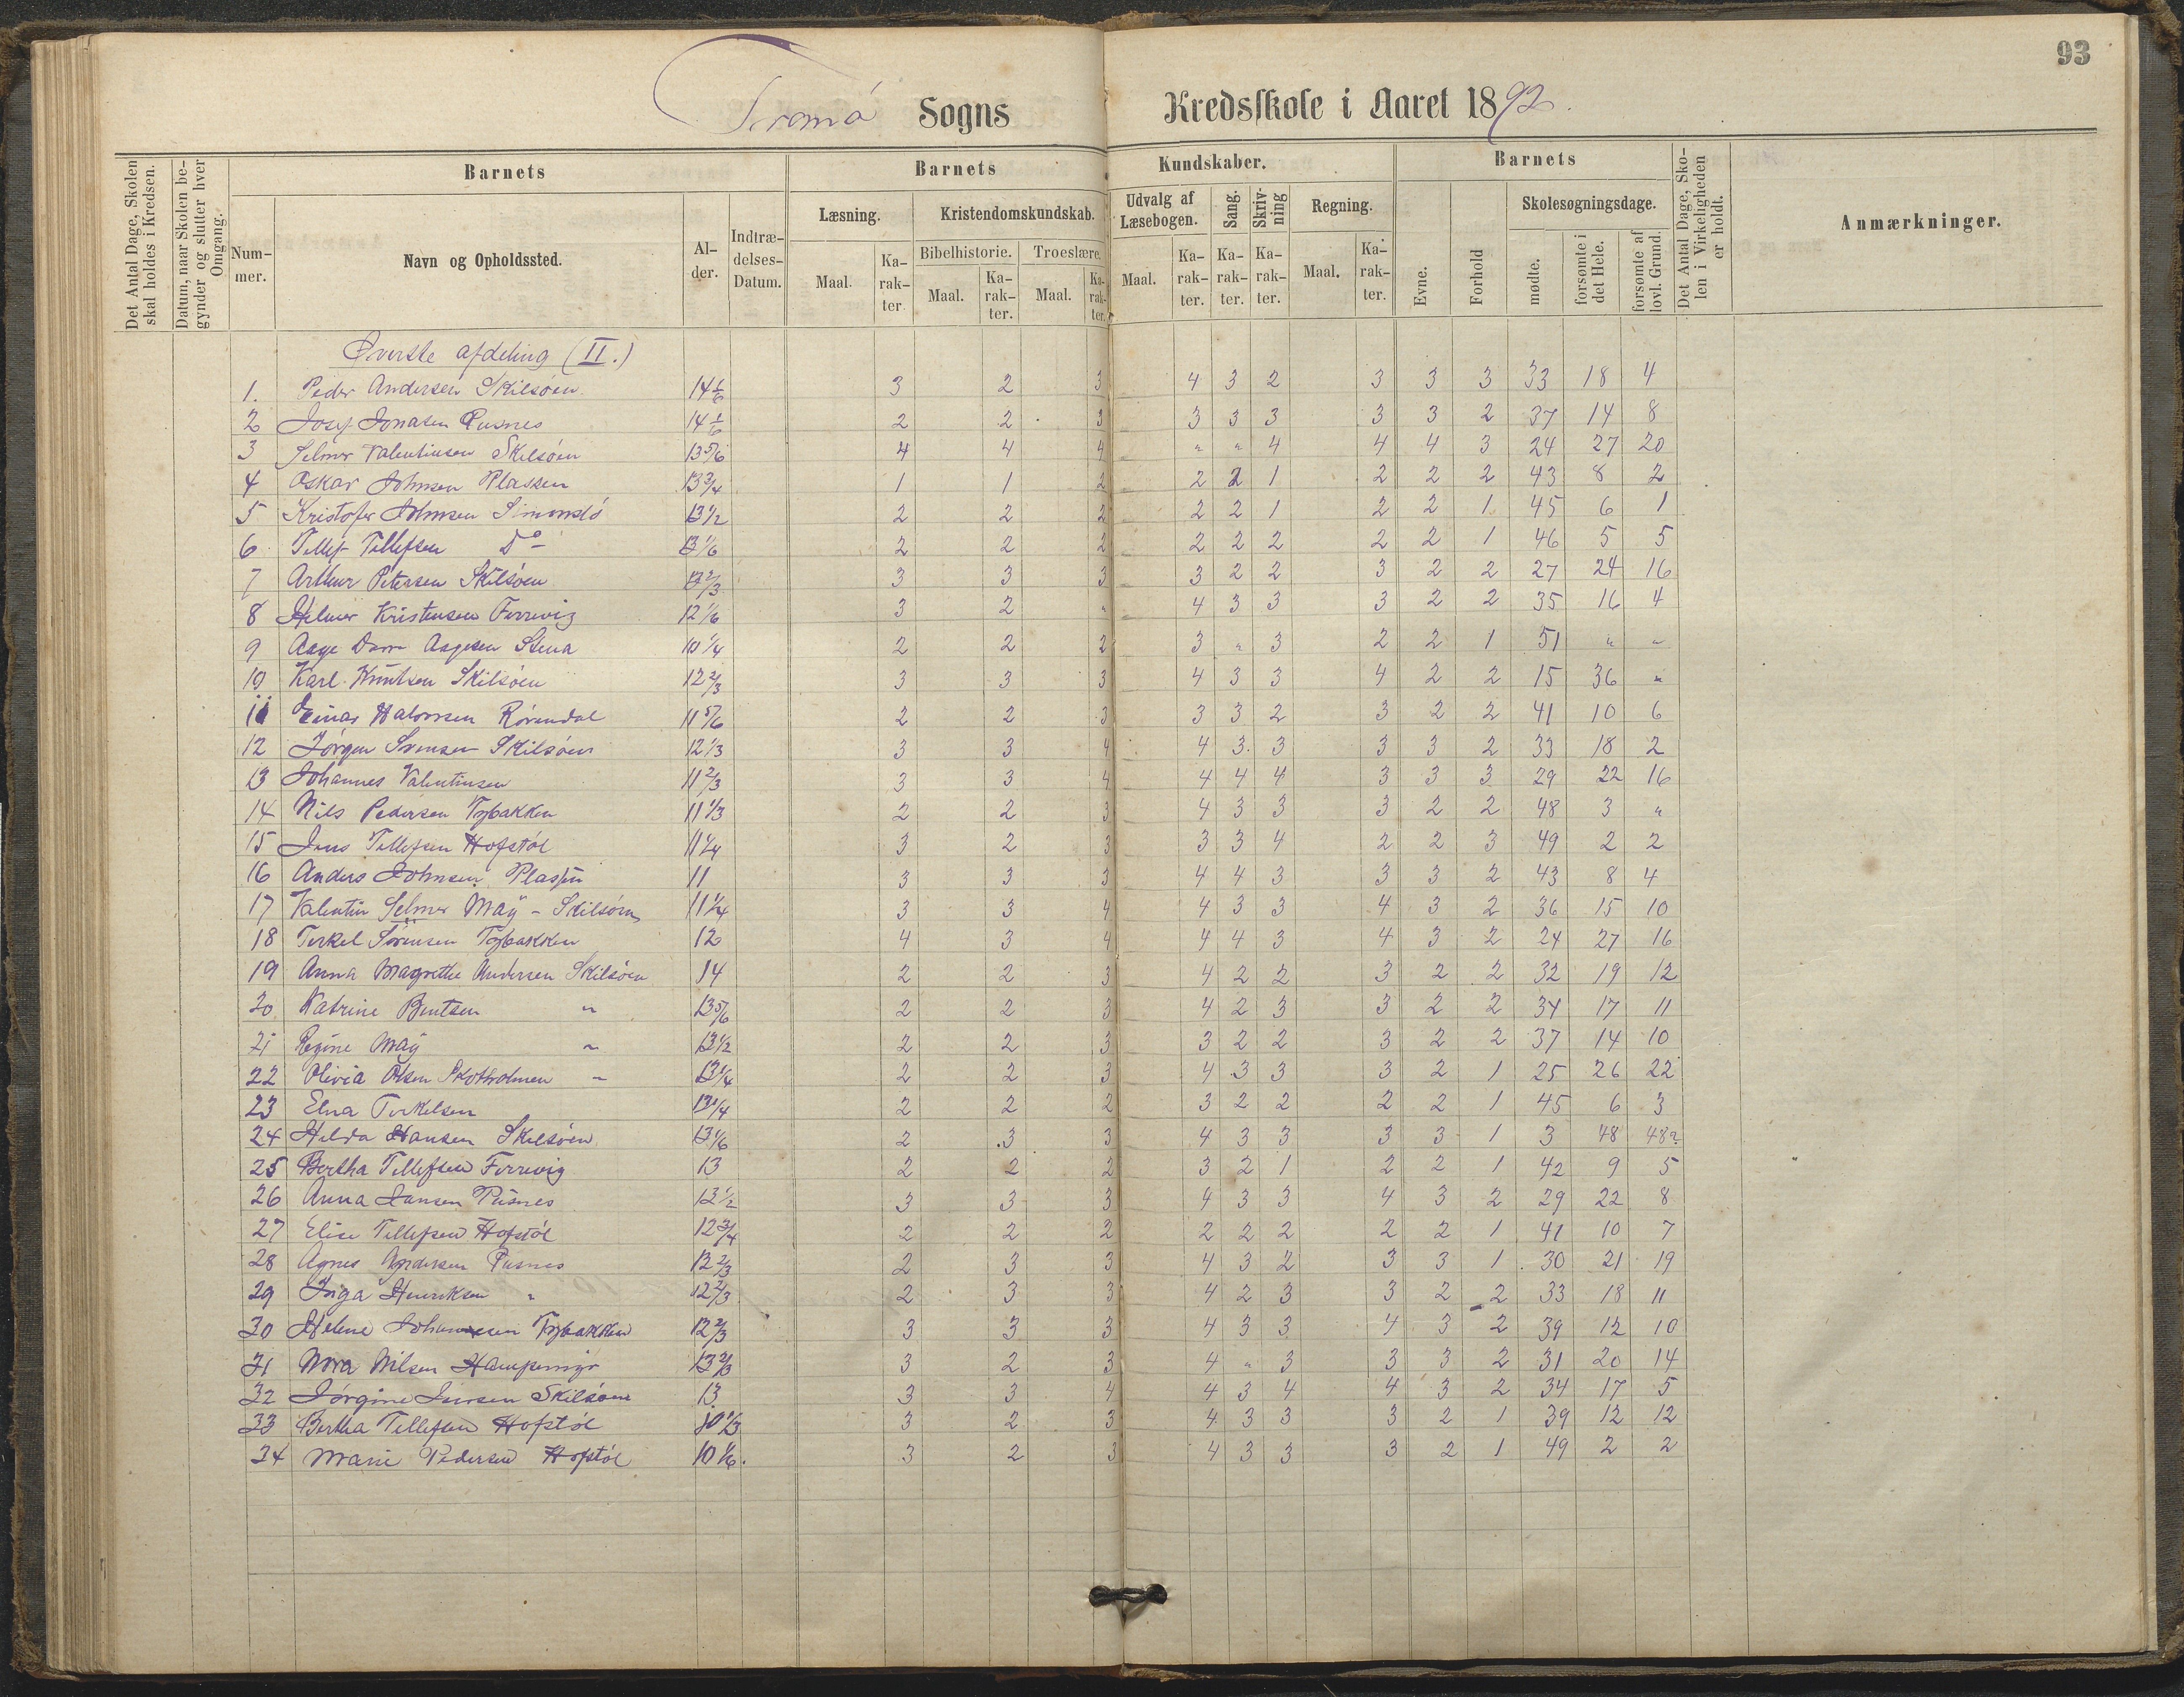 93
Tromø Sogns Kredsskole i Aaret 1892.
Det Antal Dage, Skolen skal holdes i Kredsen.
Datum, naar Skolen begynder og slutter hver Omgang.
Barnets Barnets Kundskaber. Barnets
Det Antal Dage, Skolen i Virkeligheden er holdt.
Anmærkninger.
Nummer. Navn og Opholdssted. Alder. Indtrædelses-Datum.
Læsning. Kristendomskundskab. Udvalg af Læsebogen. Sang. Skrivning Regning. Evne. Forhold Skolesøgningsdage.
Bibelhistorie. Troeslære.
Maal. Karakter. Maal. Karakter. Maal. Karakter. Maal. Karakter. Karakter. Karakter. Maal. Karakter. mødte. forsømte i det Hele. forsømte af lovl. Grund.
Øverste afdeling (II.)
1. Peder Andersen Skilsøen 14 1/6 3 2 3 4 3 2 3 3 3 33 18 4
2 Josef Jonasen Pusnes 14 1/6 2 2 3 3 3 3 3 3 2 37 14 8
3 Selmer Valentinsen Skilsøen 13 5/6 4 4 4 " " 4 4 4 3 24 27 20
4 Oskar Johnsen Plassen 13 3/4 1 1 2 2 2 1 2 2 2 43 8 2
5 Kristofer Johnsen 13 1/2 2 2 2 2 2 1 2 2 1 45 6 1
6 Tellef Tellefsen Do 13 1/6 2 2 2 2 2 2 2 2 1 46 5 5
7 Arthur Petersen Skilsøen 3 3 3 3 2 2 3 2 2 27 24 16
8 Helmer Kristensen Færevig 12 1/6 3 2 " 4 3 3 3 2 2 35 16 4
9 Aage Aagesen Stena 10 1/4 2 2 2 3 " 3 2 2 1 51 " "
10 Karl Knutsen Skilsøen 12 2/3 3 3 3 4 3 3 4 2 2 15 36 "
11 Einar Halvorsen Rørendal 11 5/6 2 2 3 3 3 2 3 2 2 41 10 6
12 Jørgen Svensen Skilsøen 12 1/3 3 3 4 4 3 3 3 3 2 33 18 2
13 Johannes Valentinsen 11 2/3 3 3 4 4 4 4 3 3 3 29 22 16
14 Nils Pedersen Tybakken 11 1/3 2 2 3 4 3 3 3 2 2 48 3 "
15 Jens Tellefsen Hofstøl 11 1/4 3 2 3 3 3 4 2 2 3 49 2 2
16 Anders Johnsen Plassen 11 3 3 3 4 4 3 3 3 2 43 8 4
17 Valentin Selmer Maÿ - Skilsøen 11 1/4 3 3 4 4 3 3 4 3 2 36 15 10
18 Terkel Sørensen Tybakken 12 4 3 4 4 4 3 4 3 2 24 27 16
19 Anna Magrethe Andersen Skilsøen 14 2 2 3 4 2 2 3 2 2 32 19 12
20 Katrine Bentsen " 13 5/6 2 2 3 4 2 3 3 2 2 34 17 11
21 Regine Maÿ " 13 1/2 2 2 3 3 2 2 3 2 2 37 14 10
22 Olivia Olsen Skotholmen " 13 1/4 2 2 3 4 3 3 3 2 1 25 26 22
23 Elna Terkelsen 13 1/4 2 2 2 3 2 2 2 2 1 45 6 3
24 Hilda Hansen Skilsøen 13 1/6 2 3 3 4 3 3 3 3 1 3 48 48?
25 Bertha Tellefsen Færevig 13 2 2 2 3 2 1 2 2 1 42 9 5
26 Anna Jansen Pusnes 12 1/2 3 3 3 4 3 3 4 3 2 29 22 8
27 Elise Tellefsen Hofstøl 12 3/4 2 2 2 2 2 2 2 2 1 41 10 7
28 Agnes Andersen Pusnes 12 2/3 2 3 3 4 3 2 3 3 1 30 21 19
29 Inga Henriksen " 12 2/3 2 3 3 4 2 3 3 2 2 33 18 11
30 Helene Johannesen Tybakken 12 2/3 3 3 3 4 3 3 4 3 2 39 12 10
31 Nora Nilsen 12 2/3 3 2 3 4 " 3 3 3 2 31 20 14
32 Jørgine Jensen Skilsøen 13 3 3 4 4 3 4 4 3 2 34 17 5
33 Bertha Tellefsen Hofstøl 10 1/3 3 2 3 4 3 3 3 2 1 39 12 12
34 Marie Pedersen Hofstøl 10 1/6. 3 2 3 4 3 3 3 2 1 49 2 2